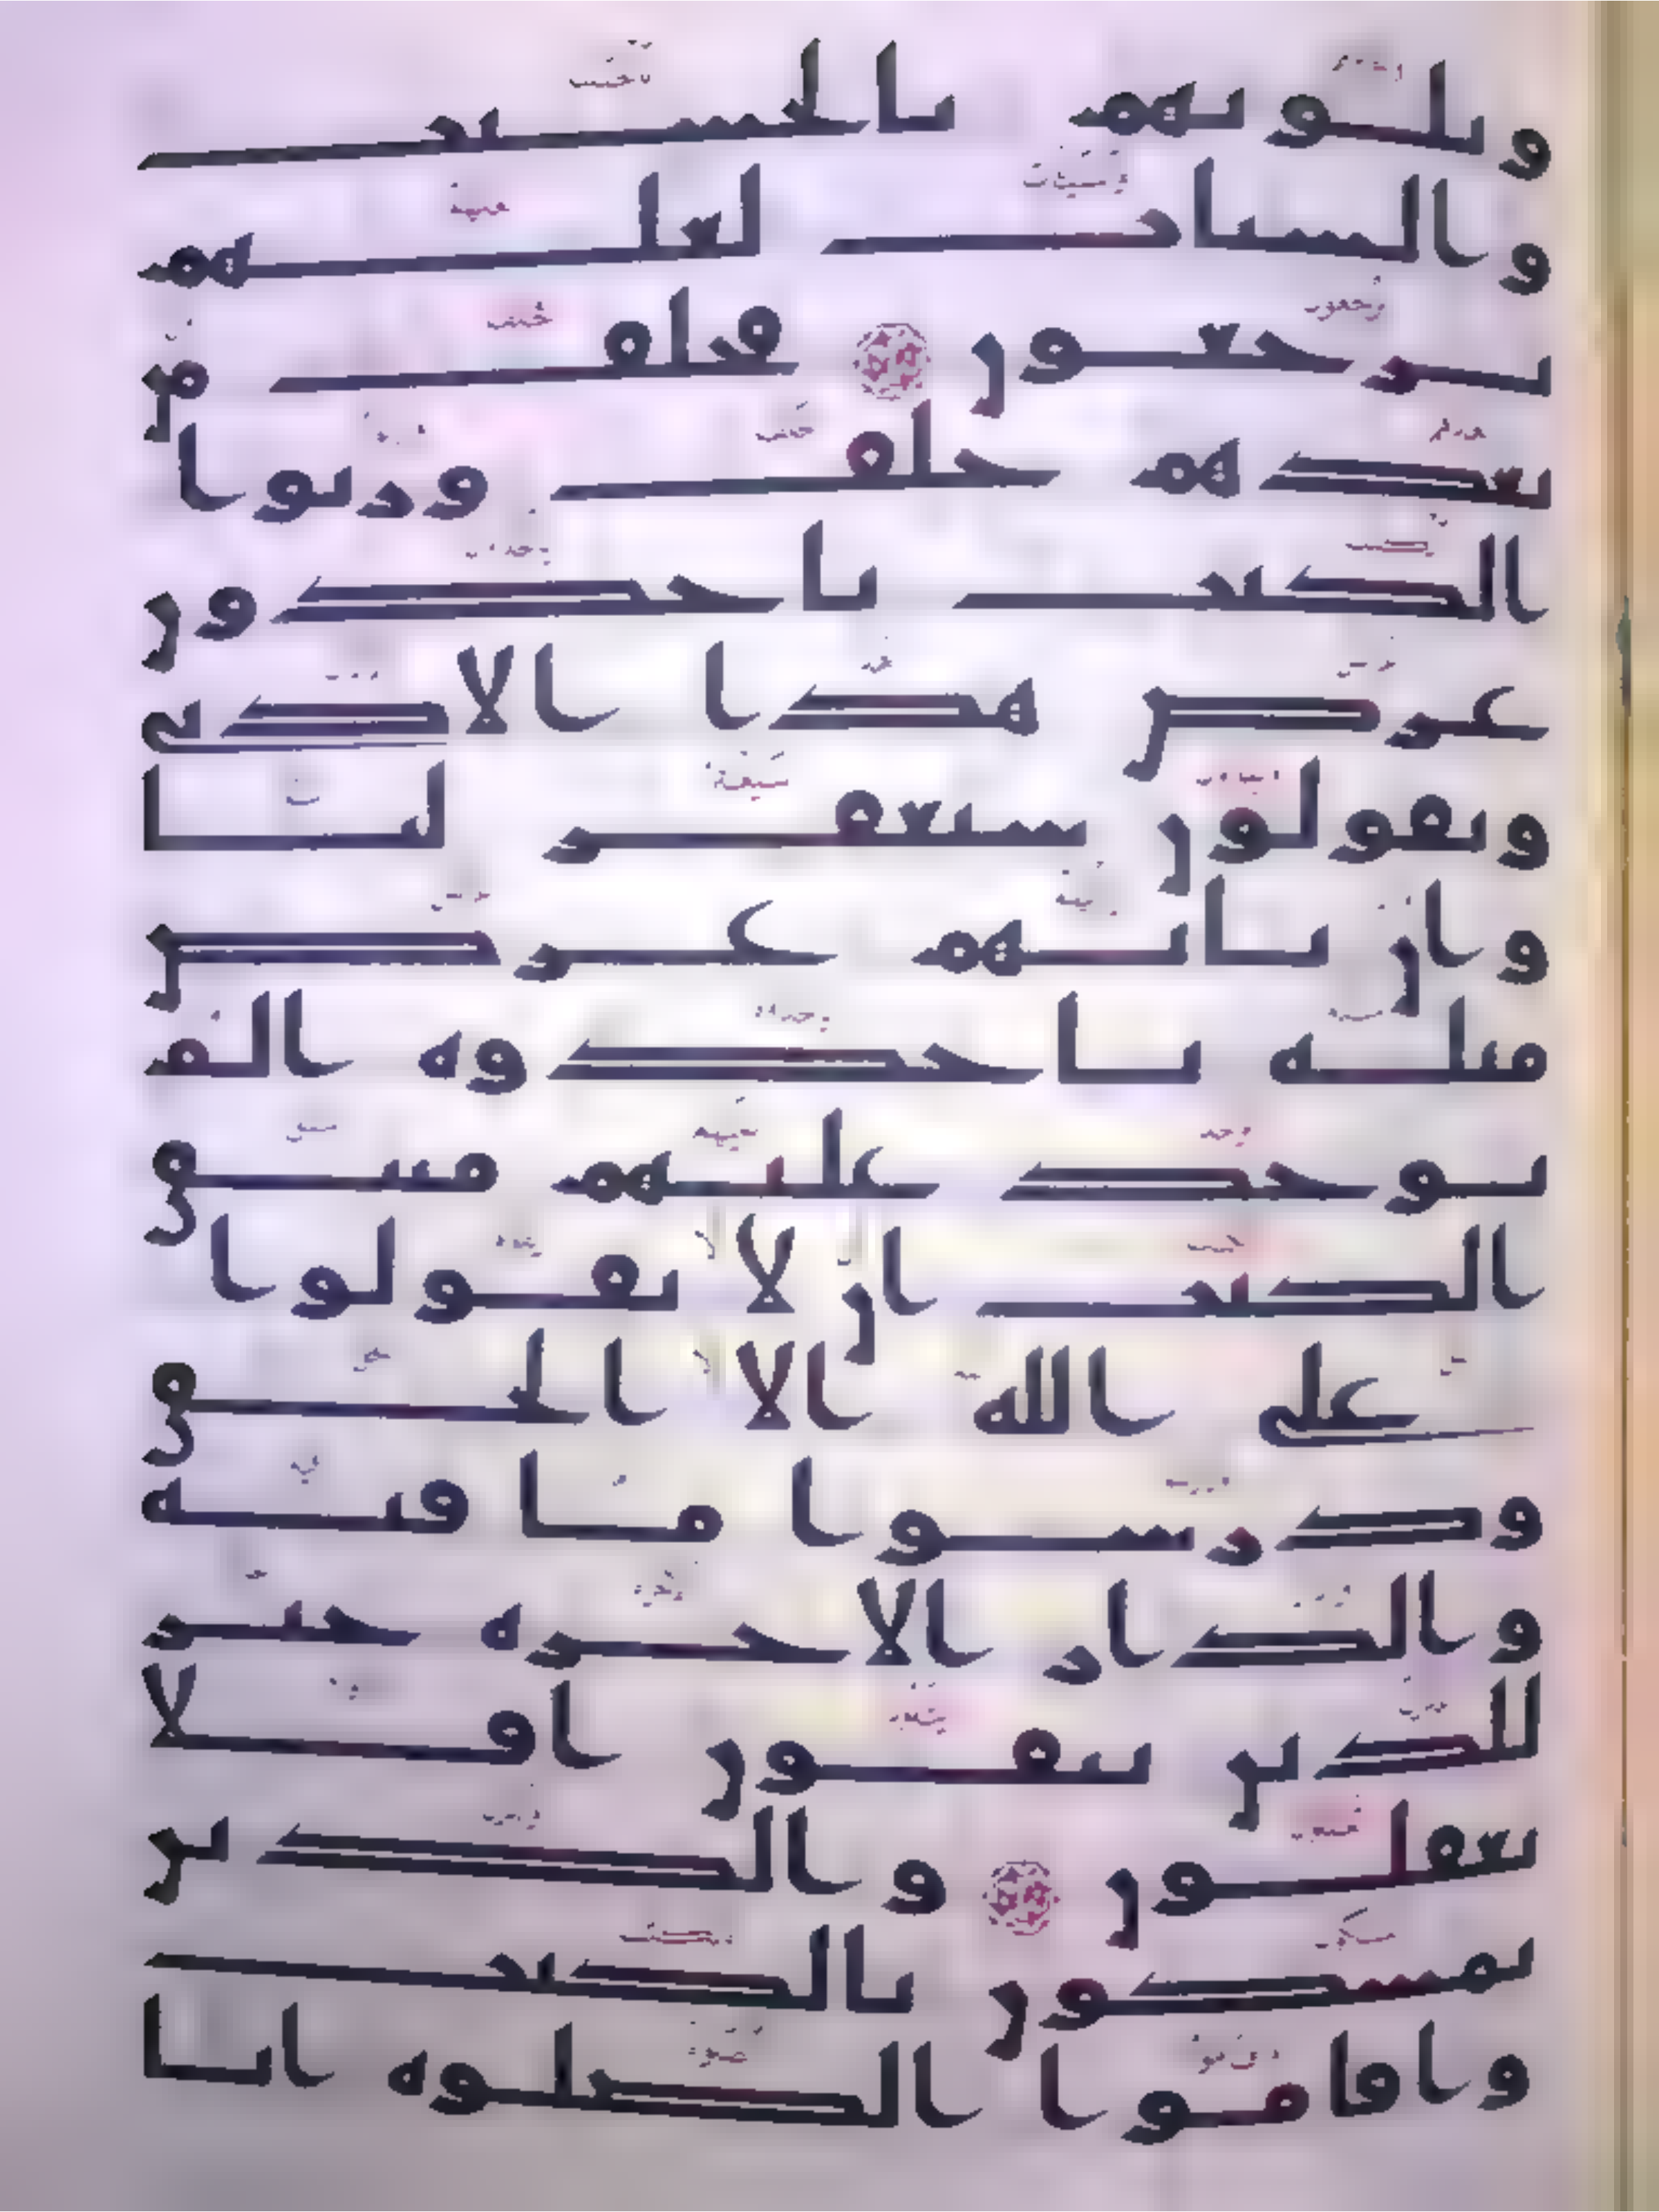 وبلونهم بالحسنت
والسيات لعلهم
يرجعون فخلف من
بعدهم خلف ورثوا
الكتب ياخذون
عرض هذا الادنى
ويقولون سيغفر لنا
وان ياتهم عرض
مثله ياخذوه الم
يوخذ عليهم ميثق
الكتب ان لا يقولوا
على الله الا الحق
ودرسوا ما فيه
والدار الاخره خير
للذين يتقون افلا
تعقلون والذين
يمسكون بالكتب
واقاموا الصلوه انا